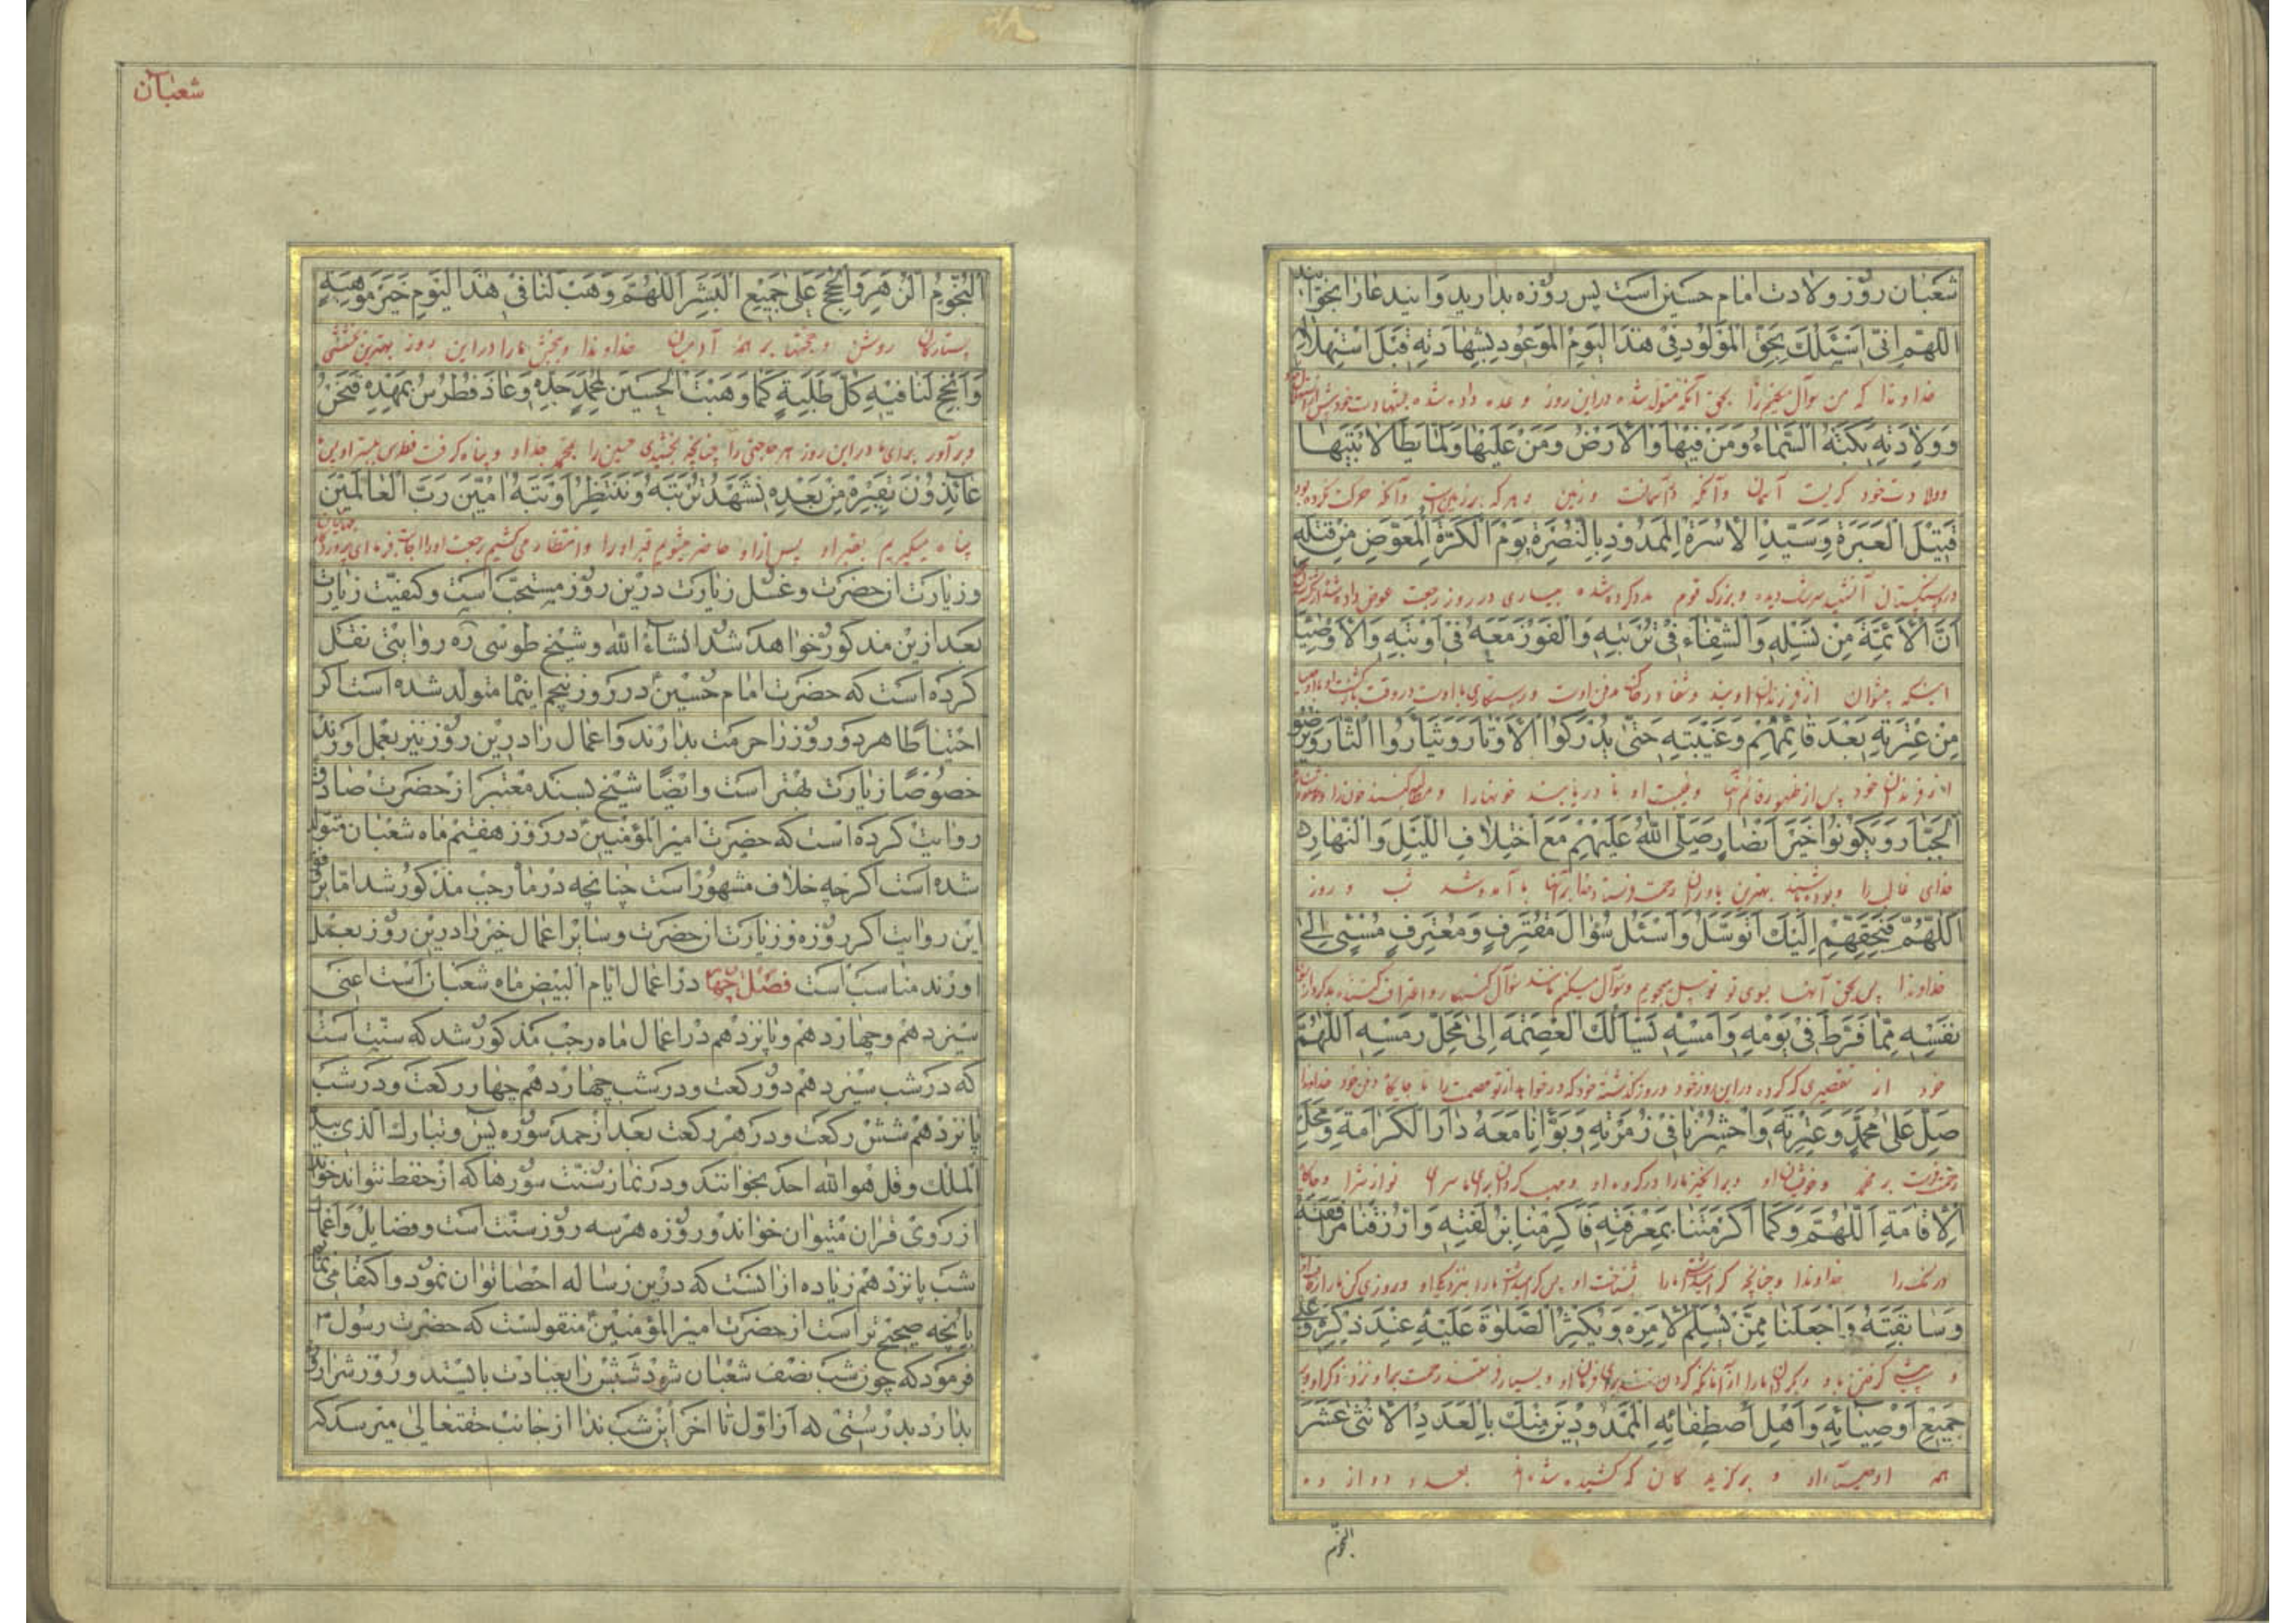 شعبان روز ولادت امام حسین است پس روزه بدارید و این دعا را بخوانید
اللهم انی اسئلک بحق المولود فی هذا الیوم الموعود بشهادته قبل استهلاله
خداوندا که من سوآل میکنم ترا بحق آنکه متولد شده در این روز وعده داده شده بشهادت خود پیش از
وولادته بکته السماء ومن فیها والارض ومن علیها ولما یطا لابتیها
وولادت خود کریست آسمان وآنکه در آسمانست وزمین وهرکه بر زمین است وآنکه حرکت نکرده بود
قتیل العبرة وسید الاسرة الممدود بالنصرة یوم الکرة المعوض من قتله
دیده وبزرک قوم مدد کرده شده بیاری در روز رجعت عوض داده شده از
ان الائمة من نسله والشفاء فی تربته والفوز معه فی اوبته والاوصیا
اینکه پیشوایان از فرزندان اویند وشفا در خاک مدفن اوست ورستکاری با اوست در وقت بازکشت او
من عترته بعد قائمهم وغیبته حتی یدرکوا الاوتار ویثاروا الثار ویرضوا
از فرزندان خود پس از ظهور قائم آنها وغیبت او تا دریابند خونها را ومطالبه کنند خون را
الجبار ویکونوا خیر انصار صلی الله علیهم مع اختلاف اللیل والنهار
خدای غالب را وبوده باشند بهترین یاوران رحمت فرستد خدا بر آنها با آمد وشد شب و روز
اللهم فبحقهم الیک اتوسل واسئل سؤال مقترف ومعترف مسیئ الی
خداوندا پس بحق آنها بسوی تو توسل میجویم وسوآل میکنم مانند سوآل کنهکار واعتراف کننده بدکردار
نفسه مما فرط فی یومه وامسه یسالک العصمة الی محل رمسه اللهم
خود از تقصیری که کرده در این روز خود در روز کذشته خود که درخواهد از تو عصمت را تا جایکاه دفن خود خداوندا
صل علی محمد وعترته واحشرنا فی زمرته وبوانا معه دار الکرامة ومحل
رحمت فرست بر محمد وخویشان او وبرانکیز ما را در کروه او
الاقامة اللهم وکما اکرمتنا بمعرفته فاکرمنا بزلفته وارزقنا مرافقته
خداوندا وچنانچه کرامی داشتی ما را بشناخت او پس کرامی دار ما را بنزدیکی او وروزی کن ما را
وسابقته واجعلنا ممن یسلم لامره ویکثر الصلوة علیه عند ذکره وعلی
وبکردان ما را از آنانکه کردن نهند برای فرمان او وبسیار فرستند رحمت بر او نزد ذکر او وبر
جمیع اوصیائه واهل اصطفائه الممدودین منک بالعدد الاثنی عشر
همه اوصیاء او و برکزیدکان که کشیده شده بعدد دوازده
النجوم
شعبان
النجوم الزهر والحجج علی جمیع البشر اللهم وهب لنا فی هذا الیوم خیر موهبة
ستارکان روشن وحجتها بر همهٔ آدمیان خداوندا وببخش ما را در این روز بهترین بخششی
وانجح لنا فیه کل طلبة کما وهبت الحسین لمحمد جده وعاذ فطرس بمهده فنحن
وبرآور برای ما در این روز هر حاجتی را چنانچه بخشیدی حسین را بمحمد جد او وپناه کرفت فطرس ببستر او پس ما
عائذون بقبره من بعده نشهد تربته وننتظر اوبته امین رب العالمین
پناه میکیریم بقبر او پس از او حاضر میشویم قبر او را وانتظار می کشیم رجعت او را اجابت فرما ای پروردکار جهانیان
وزیارت ان حضرت وغسل زیارت درین روز مستحب است وکیفیت زیارت
بعد ازین مذکور خواهد شد انشاء الله وشیخ طوسی ره روایتی نقل
کرده است که حضرت امام حسین ع در روز پنجم اینماه متولد شده است اکر
احتیاطا هر دو روز را حرمت بدارند واعمال را درین روز نیز بعمل اورند
خصوصا زیارت بهتر است وایضا شیخ بسند معتبر از حضرت صادق
روایت کرده است که حضرت امیر المؤمنین ع در روز هفتم ماه شعبان متولد
شده است اکرچه خلاف مشهور است چنانچه در ماه رجب مذکور شد اما بر
این روایت اکر روزه وزیارت ان حضرت وسایر اعمال خیر را درین روز بعمل
اورند مناسب است فصل چهارم در اعمال ایام البیض ماه شعبان است اعنی
سیزدهم وچهاردهم وپانزدهم در اعمال ماه رجب مذکور شد که سنت است
که در شب سیزدهم دو رکعت ودر شب چهاردهم چهار رکعت ودر شب
پانزدهم شش رکعت ودر هر رکعت بعد از حمد سوره یس وتبارک الذی بیده
الملک وقل هو الله احد بخوانند ودر نماز سنت سورها که از حفظ نتواند خواند
از روی قران میتوان خواند وروزه هر سه روز سنت است وفضایل واعمال
شب پانزدهم زیاده از انست که درین رساله احصا توان نمود واکتفا می نمایم
بانچه صحیح تر است از حضرت امیر المؤمنین ع منقولست که حضرت رسول ص
فرمود که چون شب نصف شعبان شود شبش را بعبادت بایستد وروزش را روزه
بدارد بدرستی که از اول تا اخر این شب ندا از جانب حقتعالی میرسد که